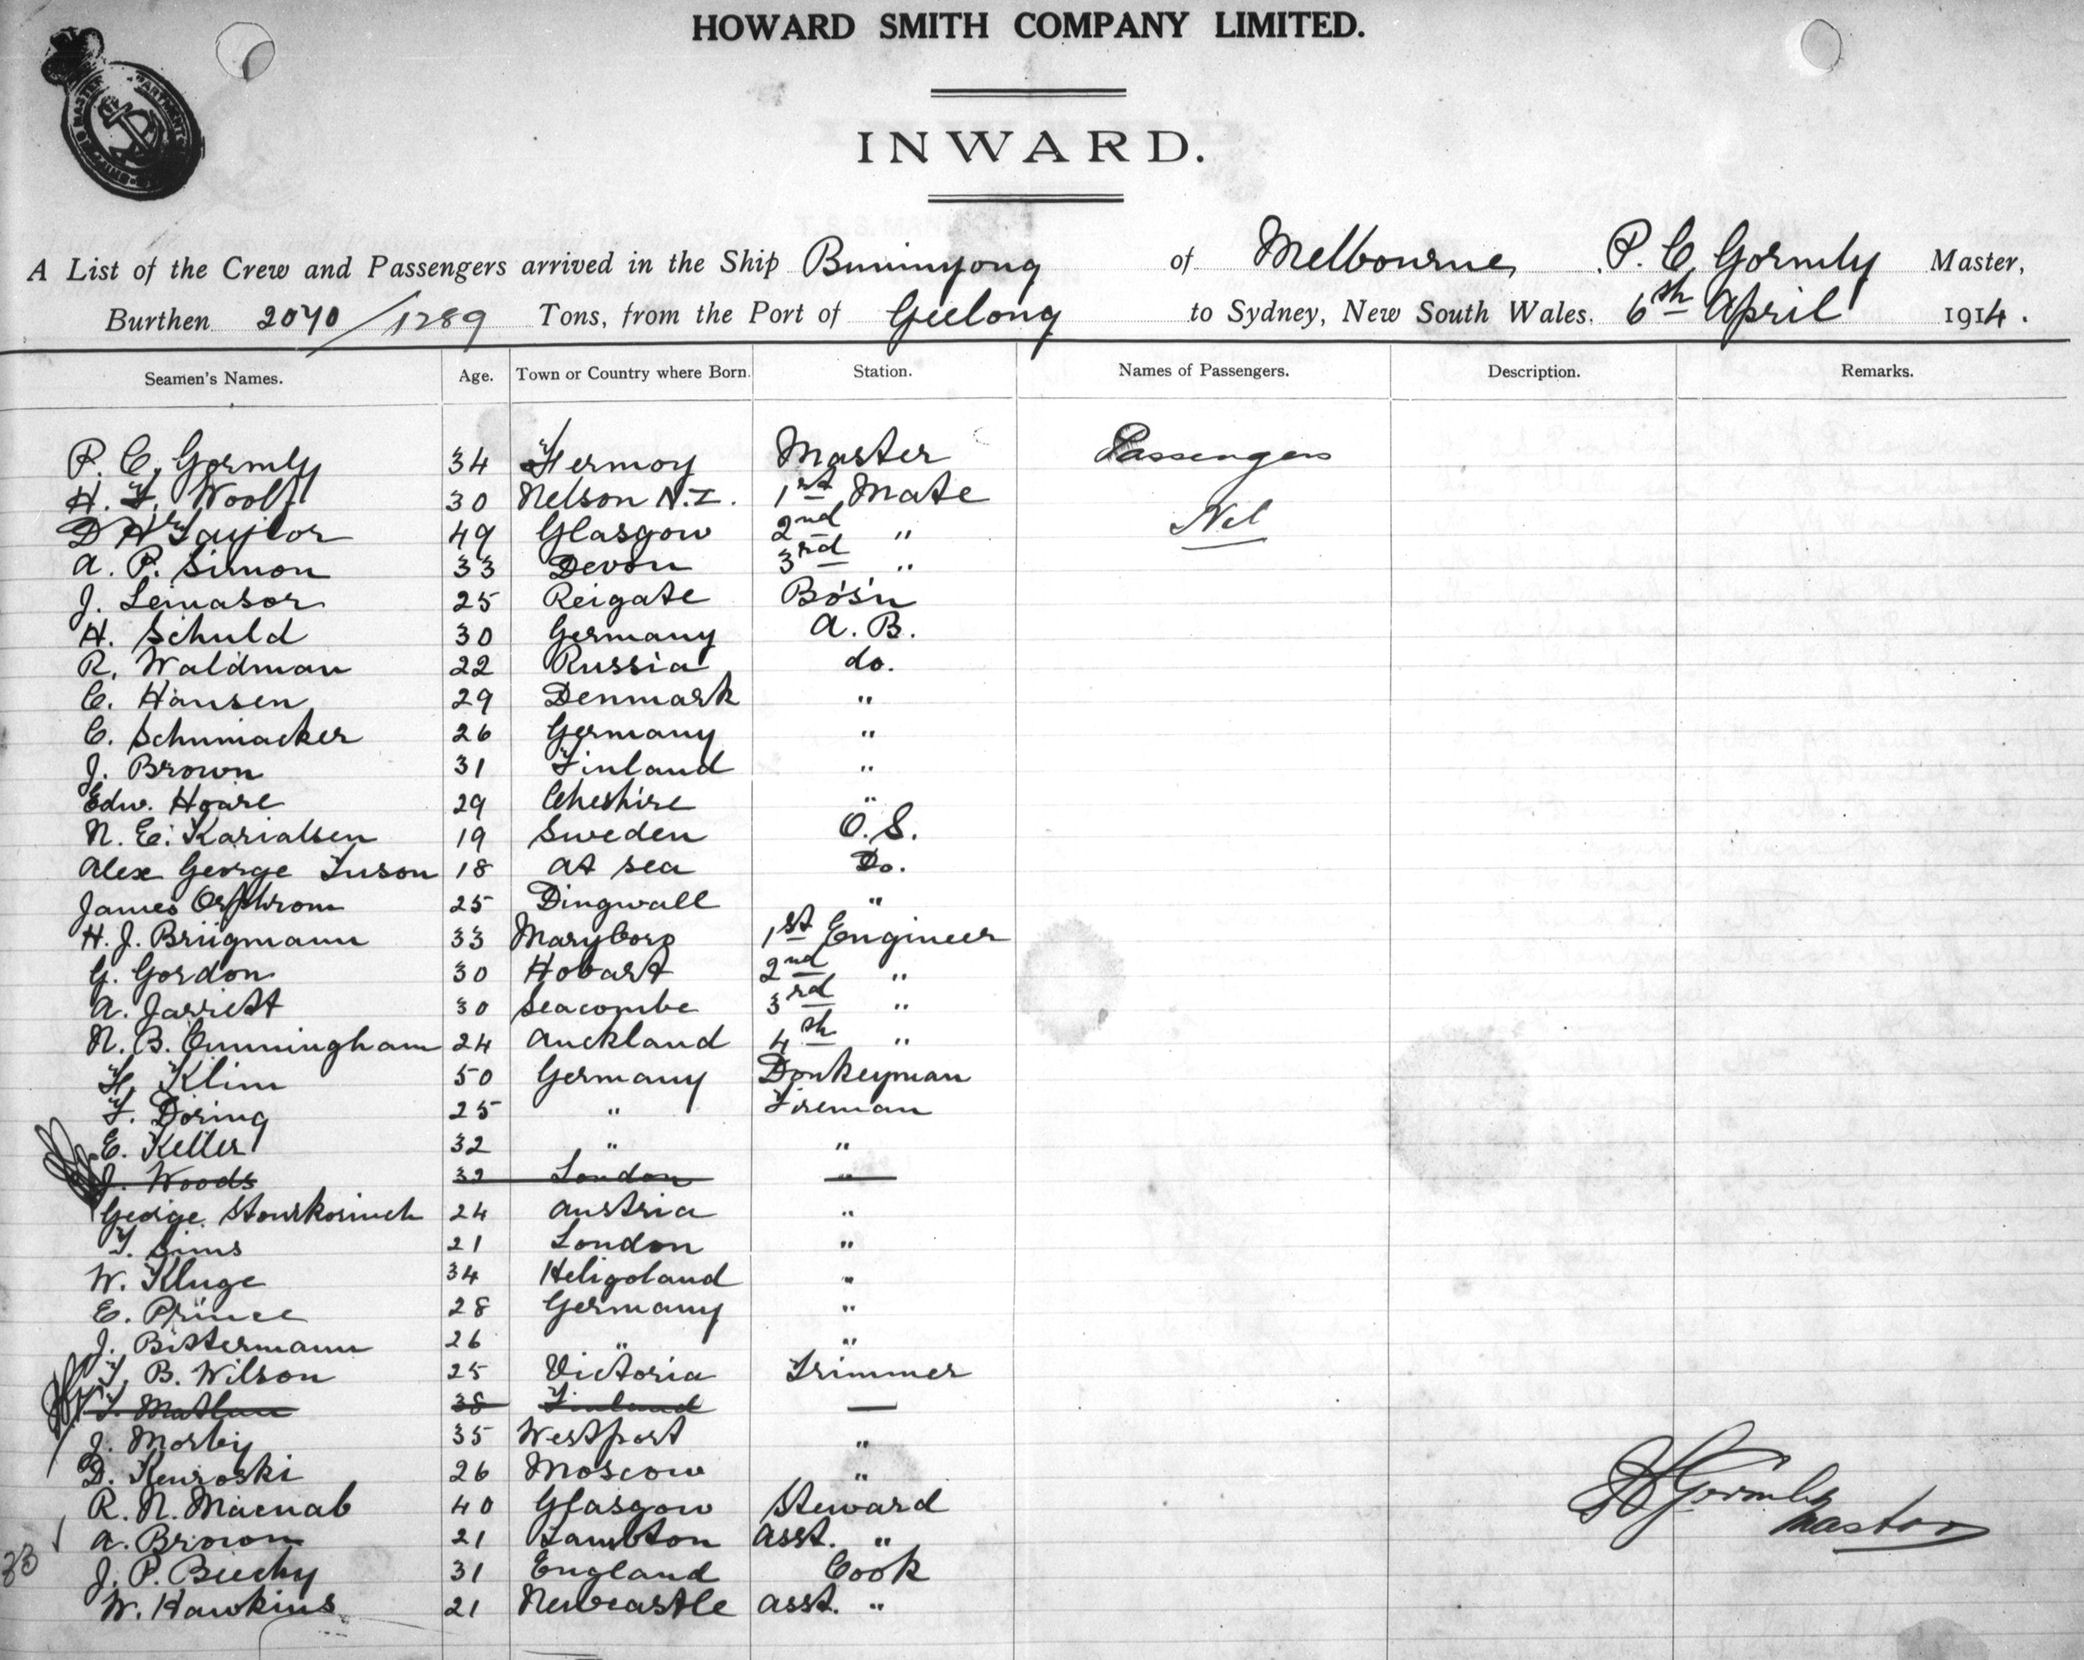 HOWARD SMITH COMPANY LIMITED.
INWARD.
A List of the Crew and Passengers arrived in the Ship Buninyong of Melbourne, P. C. Gormly Master,
Burthen 2070/1289 Tons, from the Port of Geelong to Sydney, New South Wales. 6th April 1914.
Seamen's Names. Age. Town or Country where Born. Station. Names of Passengers. Description. Remarks.
P. C. Gormly 34 Fermoy Master Passengers
H. F. Woolf 30 Nelson N.Z. 1st Mate Nil
D H Taylor 49 Glasgow 2nd "
A. P. Simon 33 Devon 3rd "
J. Lemasor 25 Reigate Bo's'n
H. Schuld 30 Germany A. B.
R. Waldman 22 Russia do.
C. Hansen 29 Denmark "
C. Schumacker 26 Germany "
J. Brown 31 Finland "
Edw. Hoare 29 Cheshire "
N. E. Karialsen 19 Sweden O. S.
Alex George Tuson 18 at sea Do.
James 25 Dingwall "
H. J. Brügmann 33 Maryboro 1st Engineer
G. Gordon 30 Hobart 2nd "
A. Jarrett 30 Seacombe 3rd "
N. B. Cunningham 24 Auckland 4th "
H. Klim 50 Germany Donkeyman
F. Doring 25 " Fireman
E. Keller 32 " "
J. Woods 32 London "
George 24 Austria "
T. Sims 21 London "
W. Kluge 34 Heligoland "
E. Prince 28 Germany "
J. Bittermann 26 " "
T. B. Wilson 25 Victoria Trimmer
38 Finland
J. Morby 35 Westport "
D. Kenroski 26 Moscow "
R. N. Macnab 40 Glasgow Steward
A. Brown 21 Lambton asst. "
33 J. P. Beechy 31 England Cook
W. Hawkins 21 Newcastle asst. "
Gormly
Master